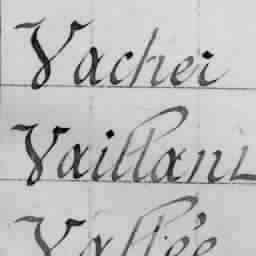 Vacher
Vaillant
Vallée